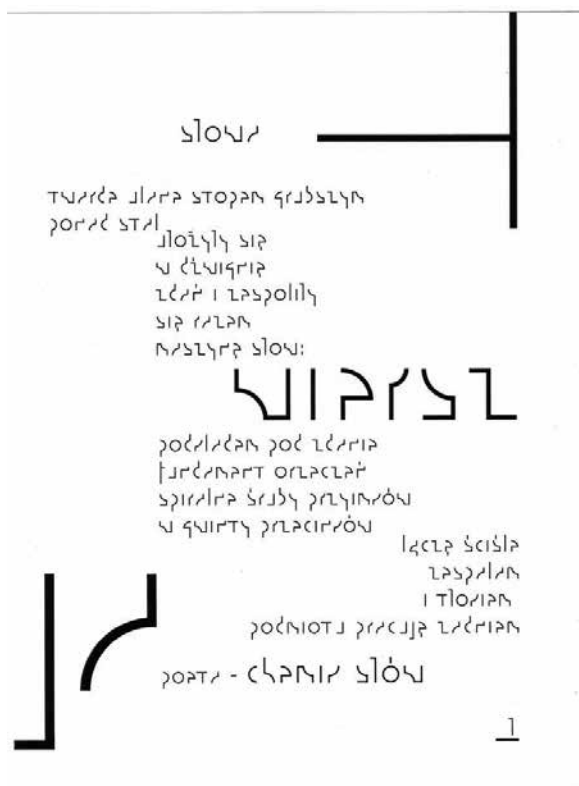 słowa
twarde ulane stopem grubszym
ponad stal
ułożyły się
w dźwignię
zdań i zespoliły
się razem
maszynę słow:
wiersz
podkładem pod zdania
fundament orzeczeń
spiralne śruby przyimków
w gwinty przecinków
łączę ściśle
zespalam
i tłokiem
podmiotu pracuję
poeta - chemik słów
1